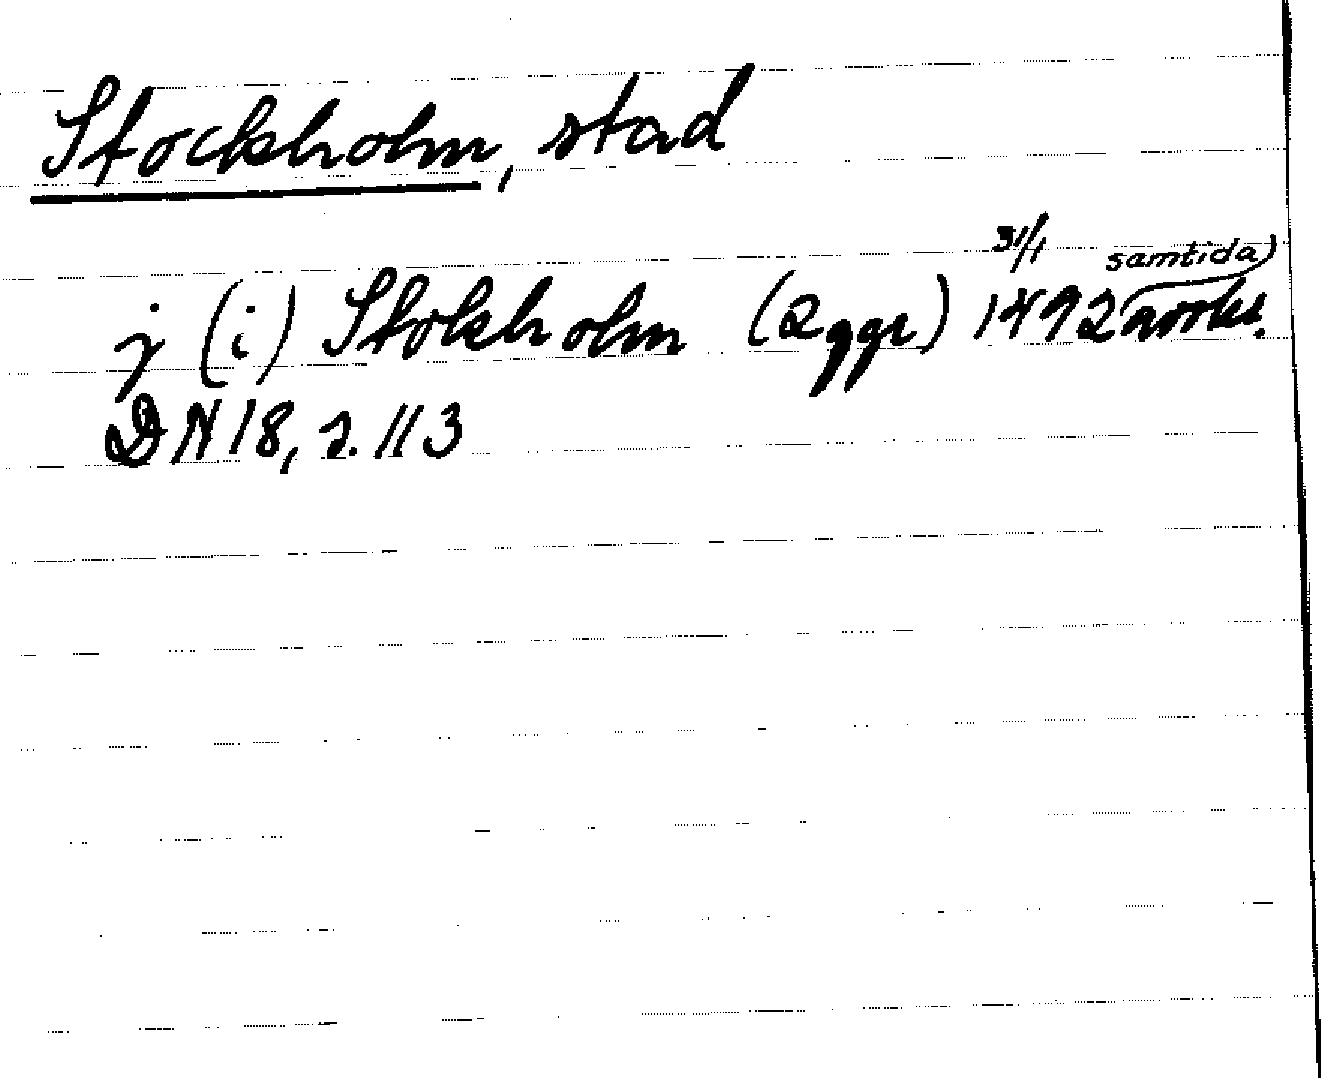 Stockholm, stad
j (i) Stokholm (2 ggr) 31/1 1492 samtida avskr.
DN 18, s. 113